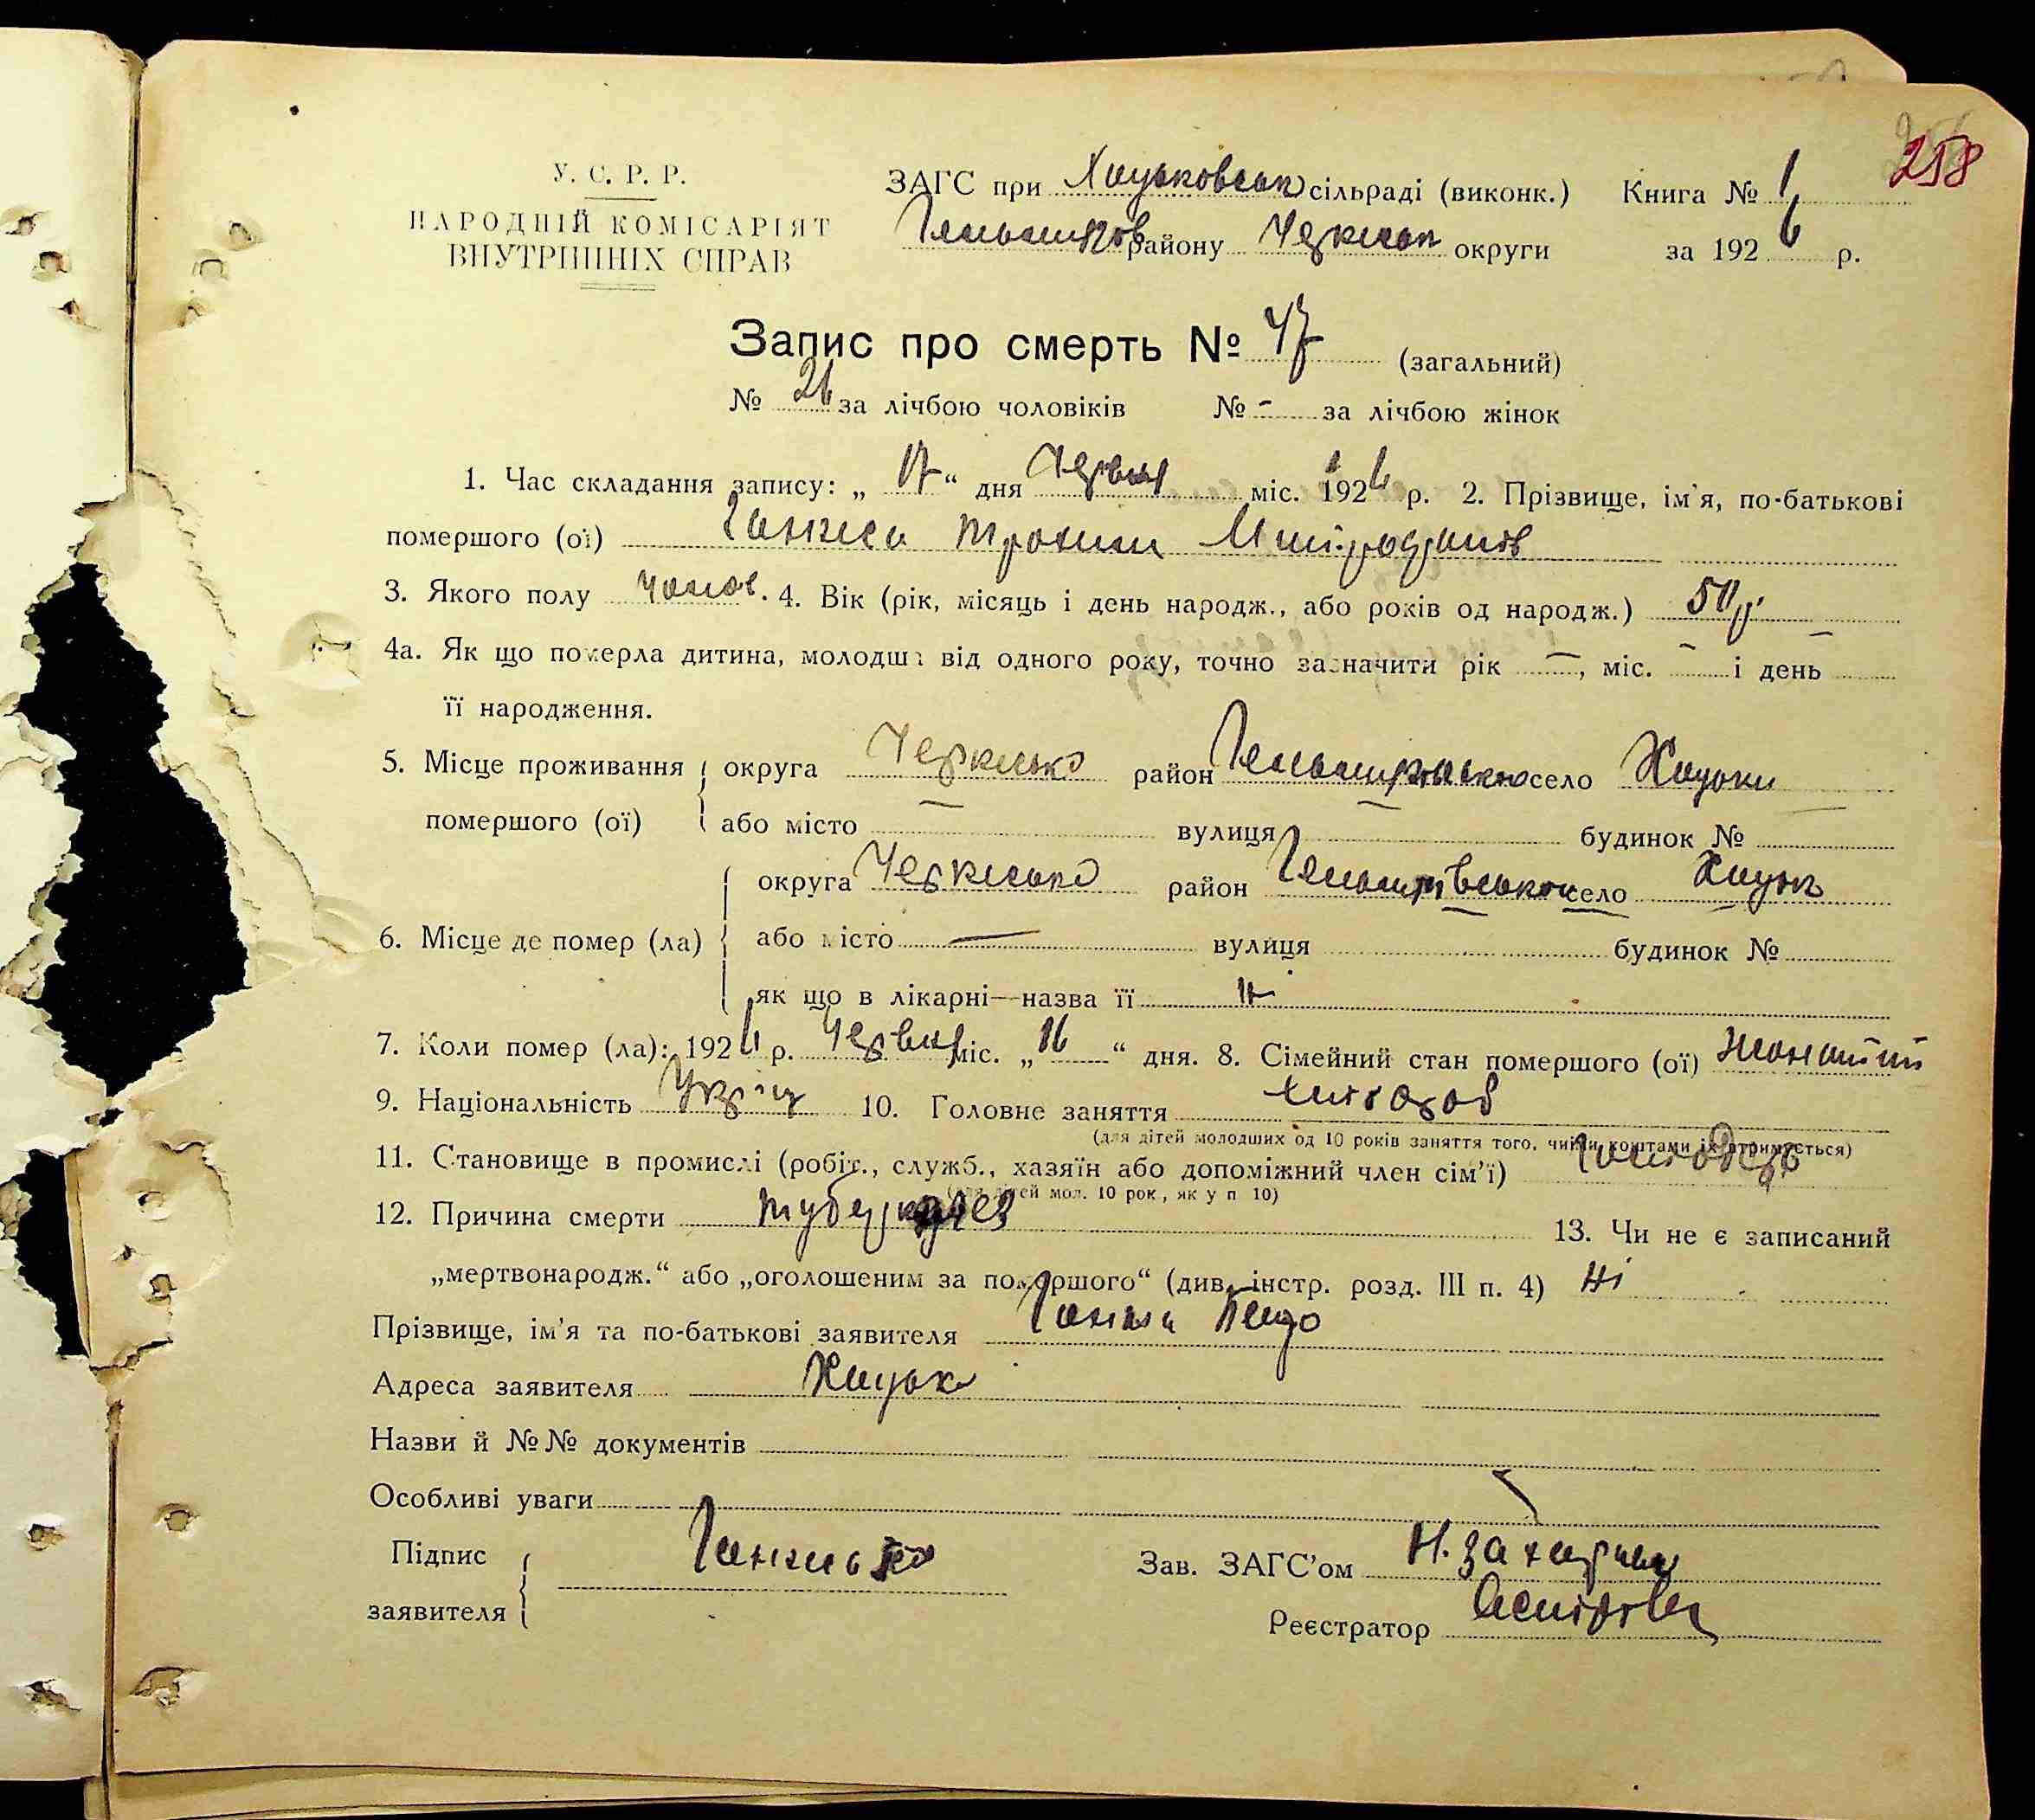 258
У. С. Р. Р.
НАРОДНІЙ КОМІСАРІЯТ
ВНУТРІШНІХ СПРАВ
ЗАГС при Хацьковськ сільраді (виконк.) Книга № 1
району Черкськ округи за 1926 р.
Запис про смерть № 47 (загальний)
№ 26 за лічбою чоловіків № - за лічбою жінок
1. Час складання запису: „ 17 “ дня Червня міс. 1926 р. 2. Прізвище, ім'я, по-батькові
помершого (ої) Ганжа Трохим
3. Якого полу чолов. 4. Вік (рік, місяць і день народж., або років од народж.) 50 р.
4а. Як що померла дитина, молодша від одного року, точно зазначити рік —, міс. — і день —
її народження.
5. Місце проживання округа Черксько район село Хацьки
помершого (ої) або місто — вулиця — будинок № —
округа Черксько район село Хацьк
6. Місце де помер (ла) або місто — вулиця — будинок №
як що в лікарні—назва її ні
7. Коли помер (ла): 1926 р. Червня міс. „ 16 “ дня. 8. Сімейний стан помершого (ої) жонатий
9. Національність Україн 10. Головне заняття хлібороб
(для дітей молодших од 10 років заняття того, чиїми коштами їх утримується)
11. Становище в промислі (робіт., служб., хазяїн або допоміжний член сім'ї)
(для дітей мол. 10 рок, як у п 10)
12. Причина смерти туберкульоз 13. Чи не є записаний
„мертвонародж.“ або „оголошеним за помершого“ (див. інстр. розд. III п. 4) ні
Прізвище, ім'я та по-батькові заявителя Ганжа
Адреса заявителя Хацьк
Назви й №№ документів
Особливі уваги
Підпис Ганжа
заявителя
Зав. ЗАГС'ом
Реєстратор